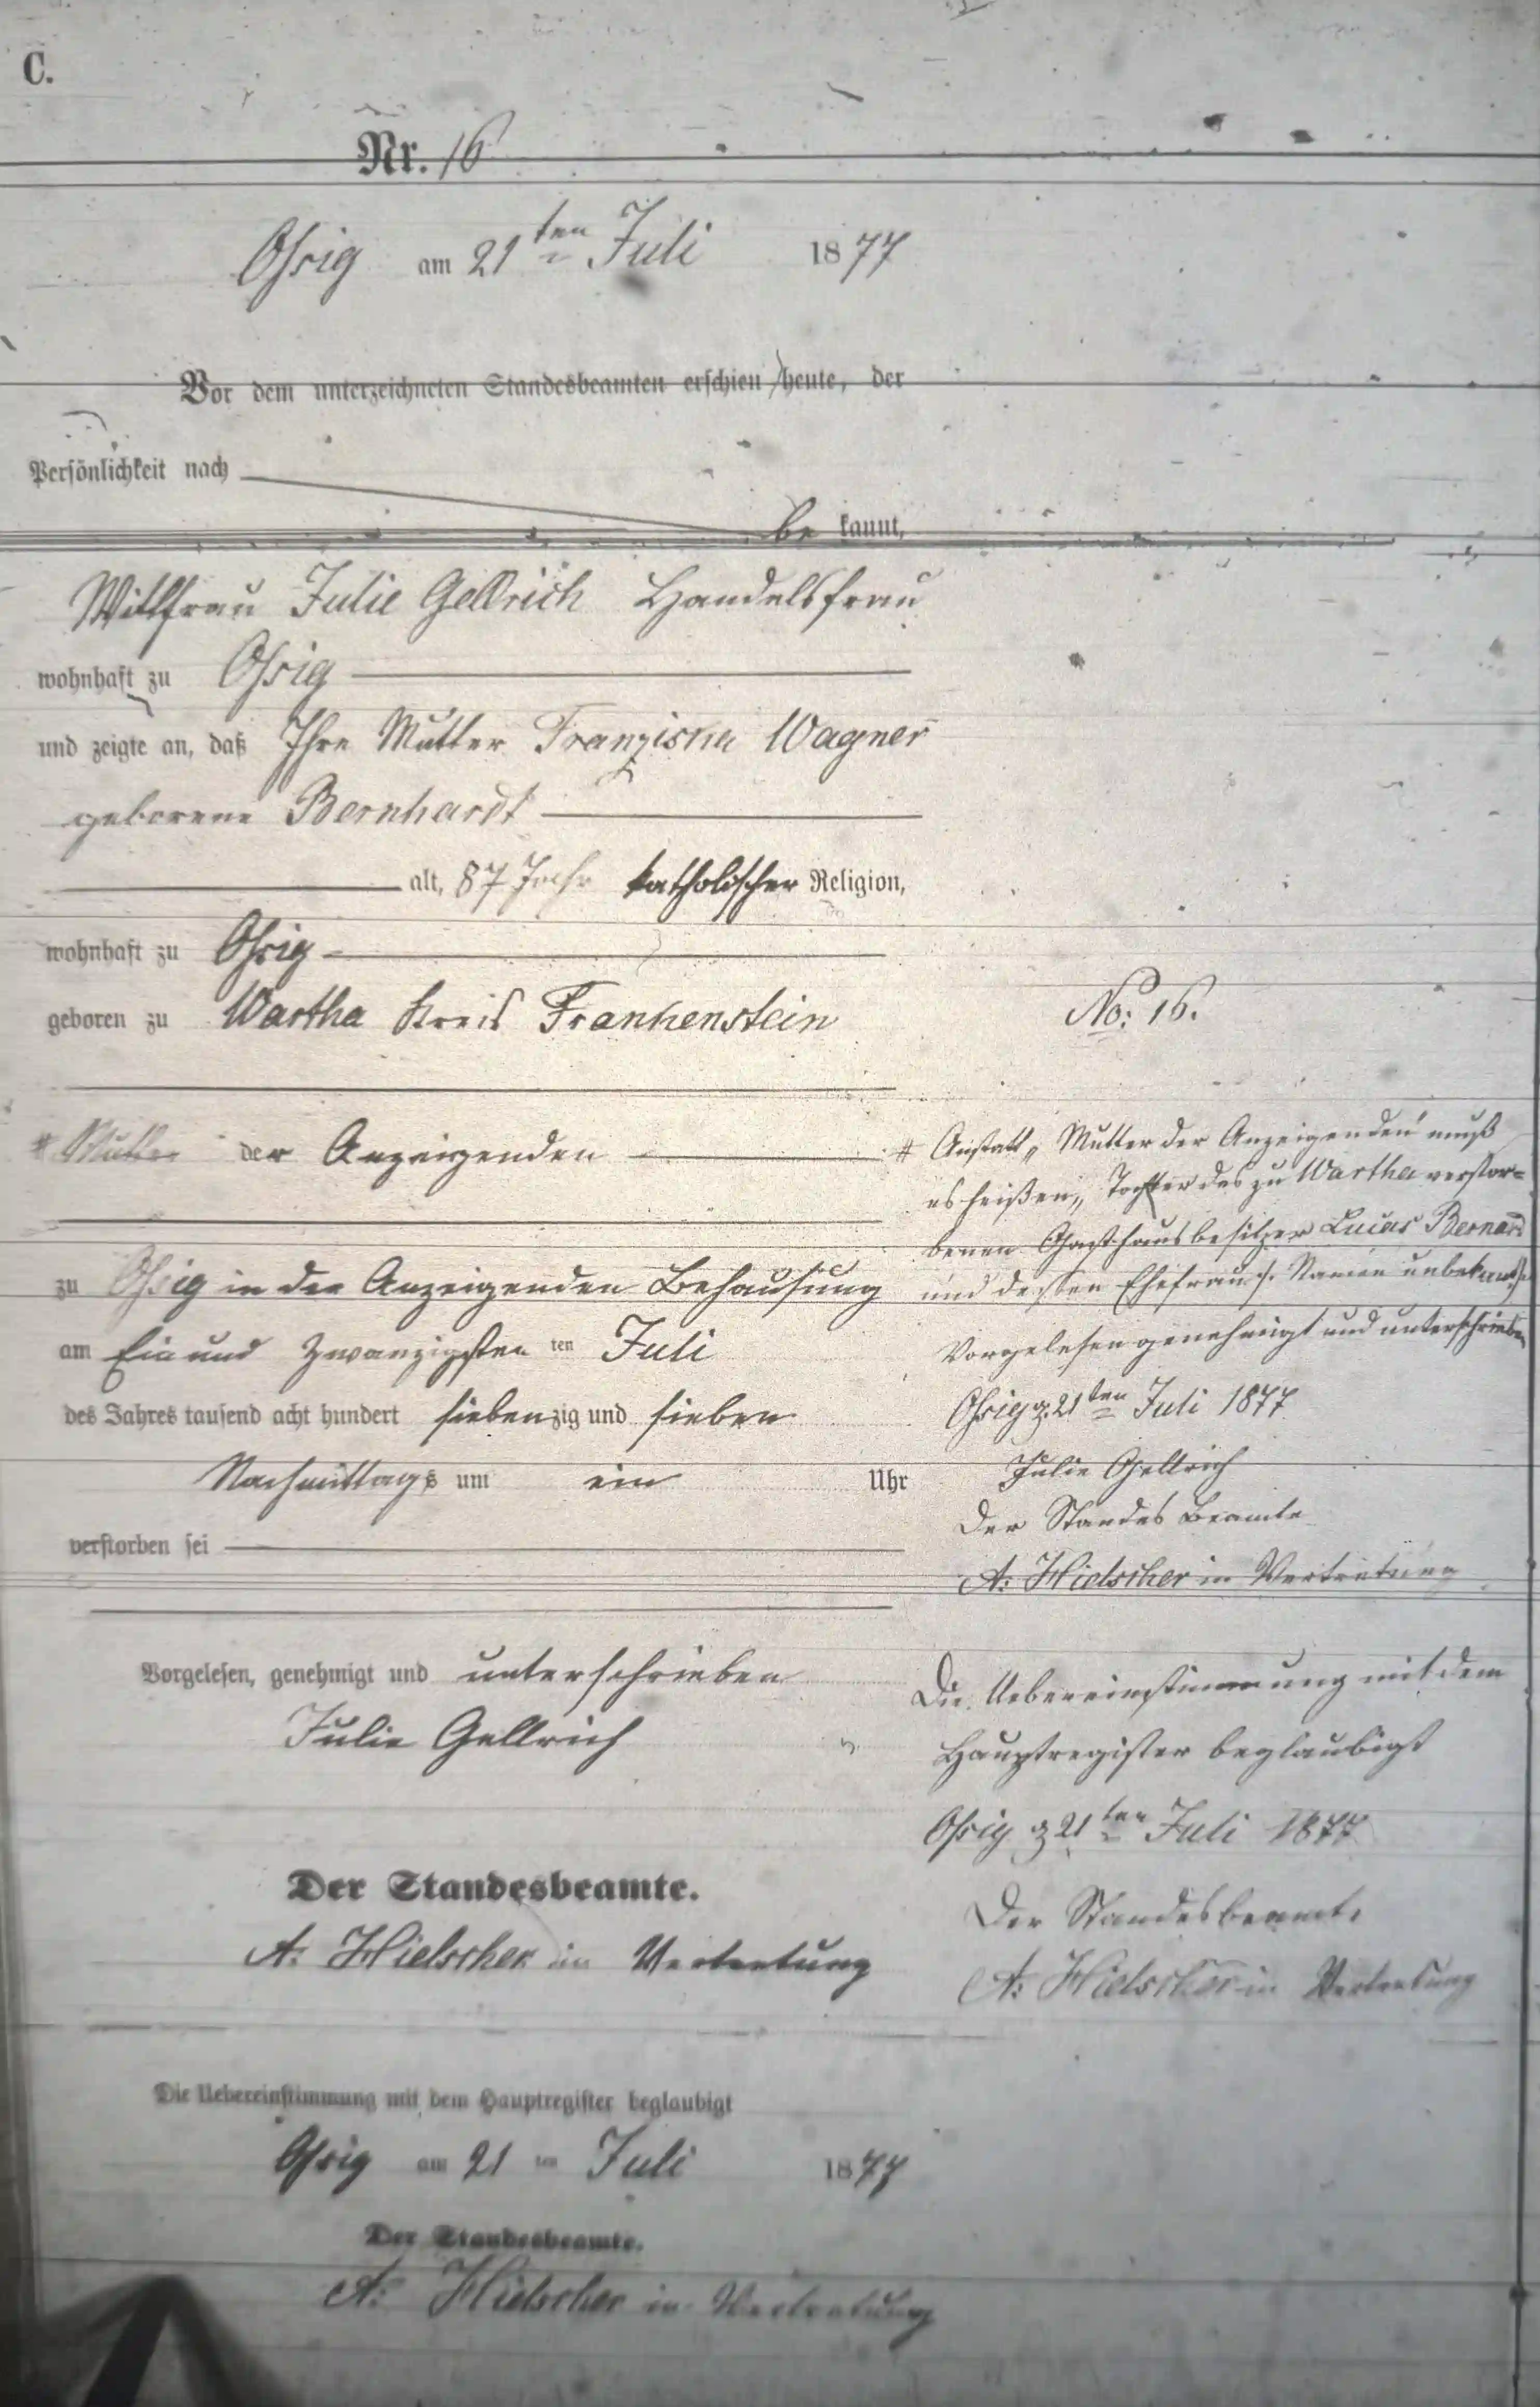 C.
Nr. 16
Ossig am 21ten Juli 1877
Vor dem unterzeichneten Standesbeamten erschien heute, der
Persönlichkeit nach
be kannt,
Wittfrau Julie Gellrich Handelsfrau
wohnhaft zu Ossig
und zeigte an, daß Ihre Mutter Franziska Wagner
geborene Bernhardt
alt, 87 Jahr katholischer Religion,
wohnhaft zu Ossig
geboren zu Wartha Kreis Frankenstein
# Mutter der Anzeigenden
zu Ossig in der Anzeigenden Behausung
am Ein und Zwanzigsten ten Juli
des Jahres tausend acht hundert siebenzig und sieben
Nachmittags um ein Uhr
verstorben sei
Vorgelesen, genehmigt und unterschrieben
Julie Gellrich
Der Standesbeamte.
A: Hielscher in Vertretung
Die Uebereinstimmung mit dem Hauptregister beglaubigt
Ossig am 21 ten Juli 1877
Der Standesbeamte.
A: Hielscher in Vertretung
No: 16.
# Anstatt „Mutter der Anzeigenden" muß
es heißen, „Tochter des zu Wartha verstor=
benen Gasthausbesitzer Lucas Bernard
und dessen Ehefrau Namen unbekannt
Vorgelesen genehmigt und unterschrieben
Ossig d. 21ten Juli 1877
Julie Gellrich
Der Standes Beamte
A: Hielscher in Vertretung
Die Uebereinstimmung mit dem
Hauptregister beglaubigt
Ossig d 21ten Juli 1877
Der Standesbeamte
A: Hielscher in Vertretung